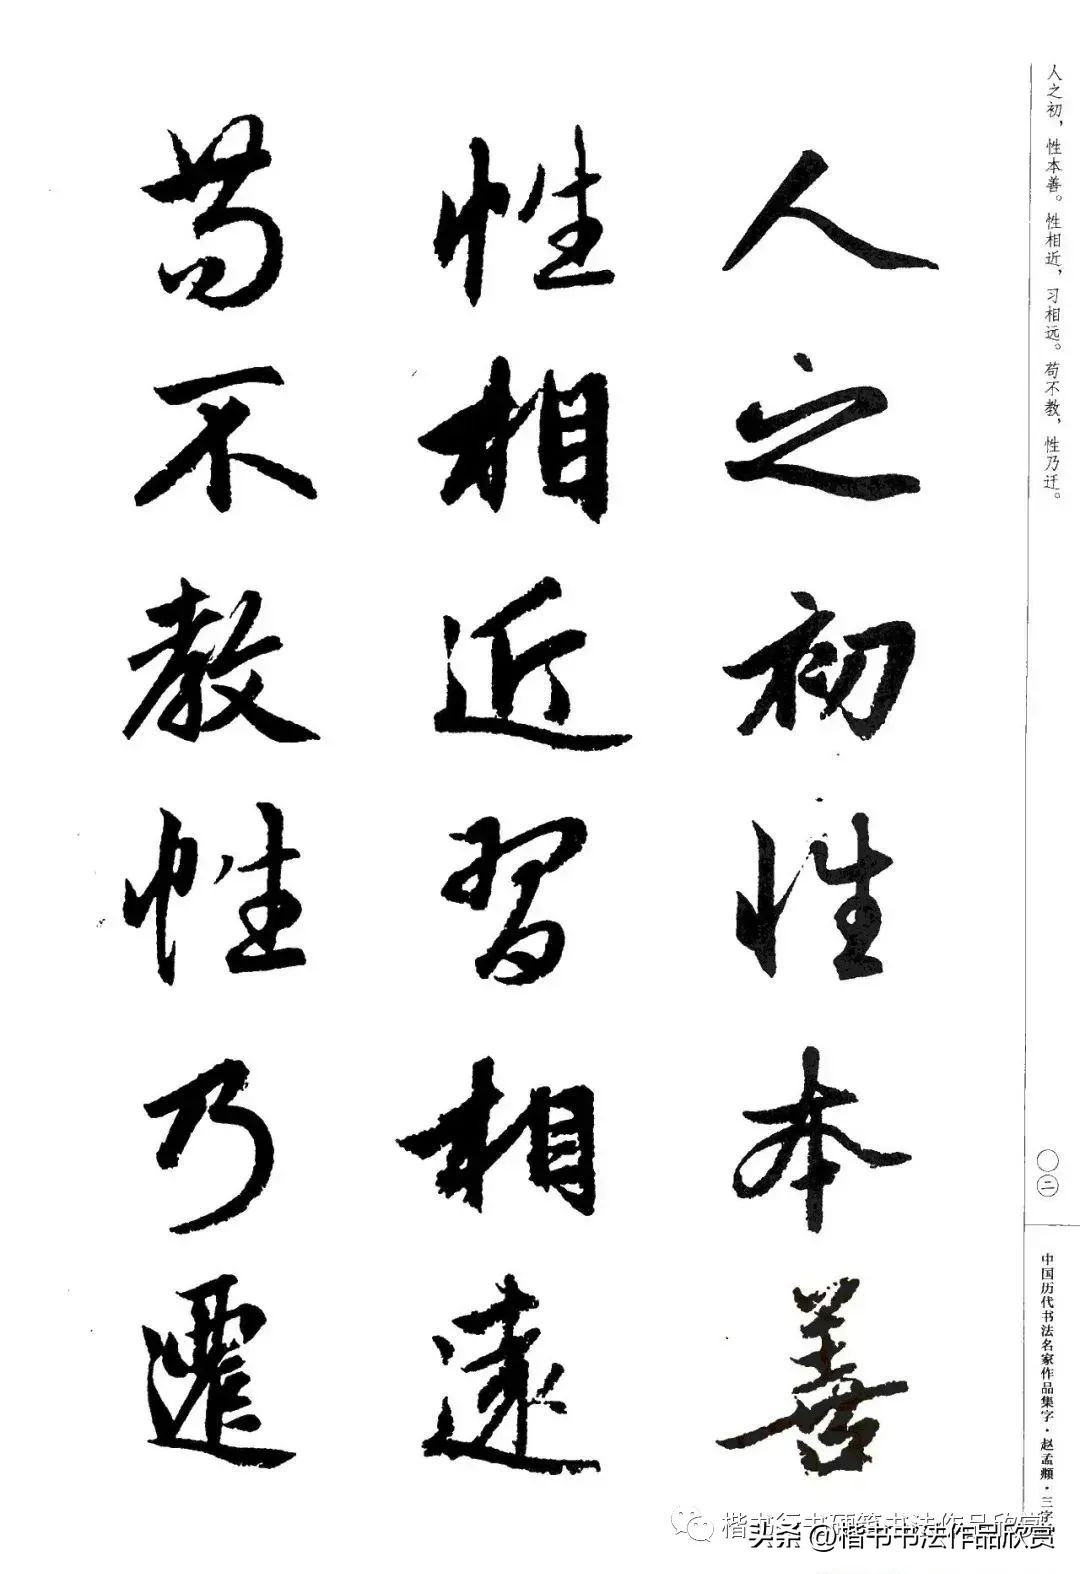 人之初性本善
性相近習相遠
苟不教性乃遷
人之初，性本善。性相近，习相远。苟不教，性乃迁。
〇二
中国历代书法名家作品集字·赵孟頫·三字
楷书行书硬笔书法作品欣赏
头条@楷书书法作品欣赏